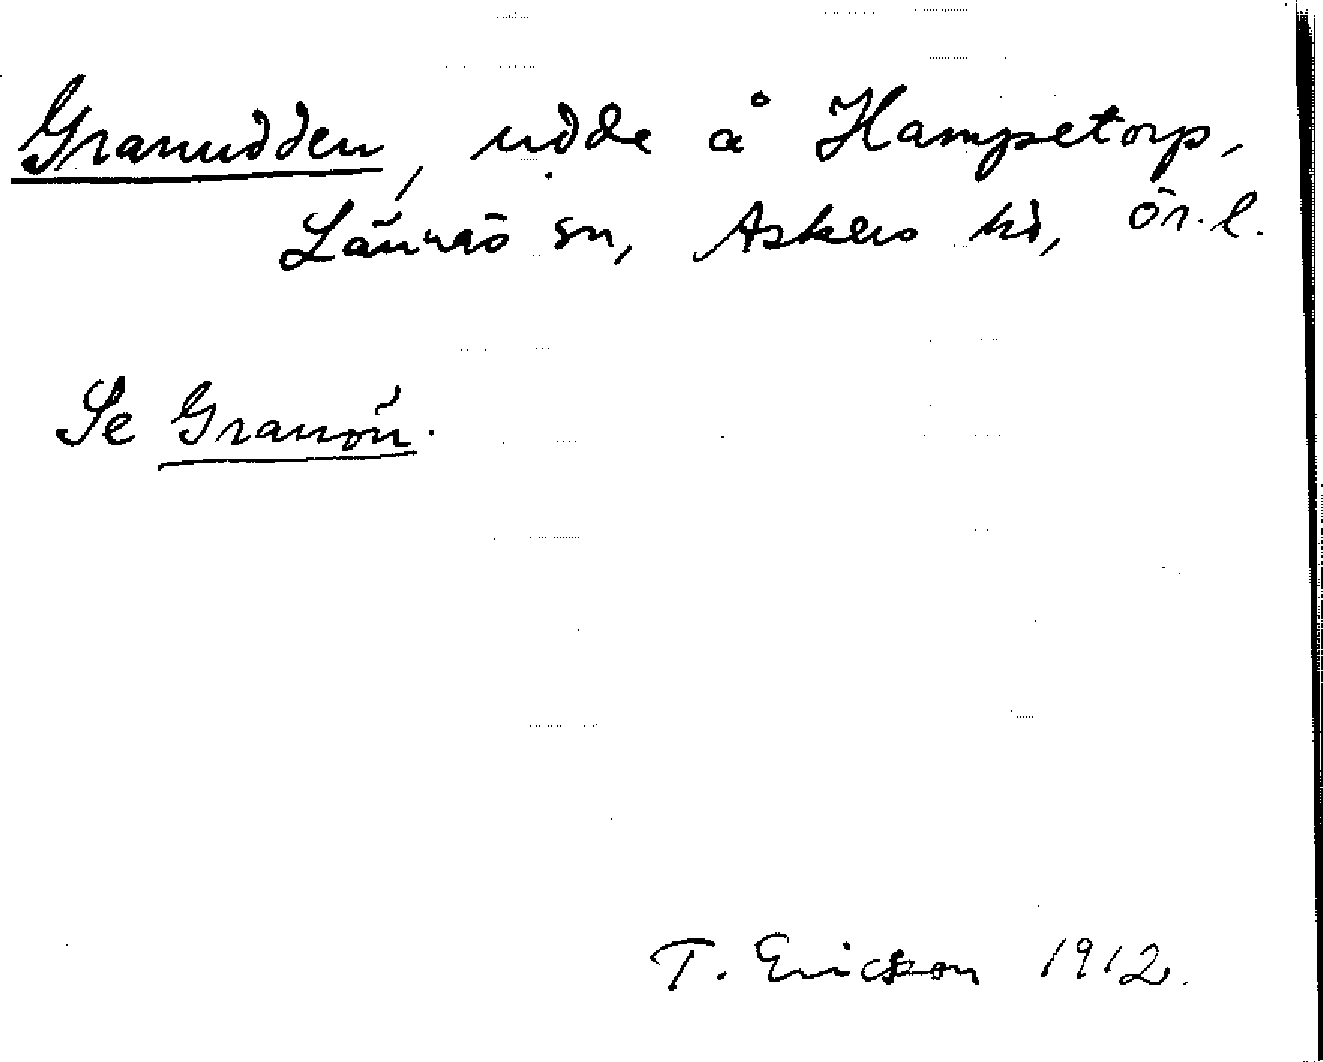 Granudden, udde å Hampetorp,
Lännäs sn, Askers hd, Ör. l.
Se Granön.
T. Ericsson 1912.